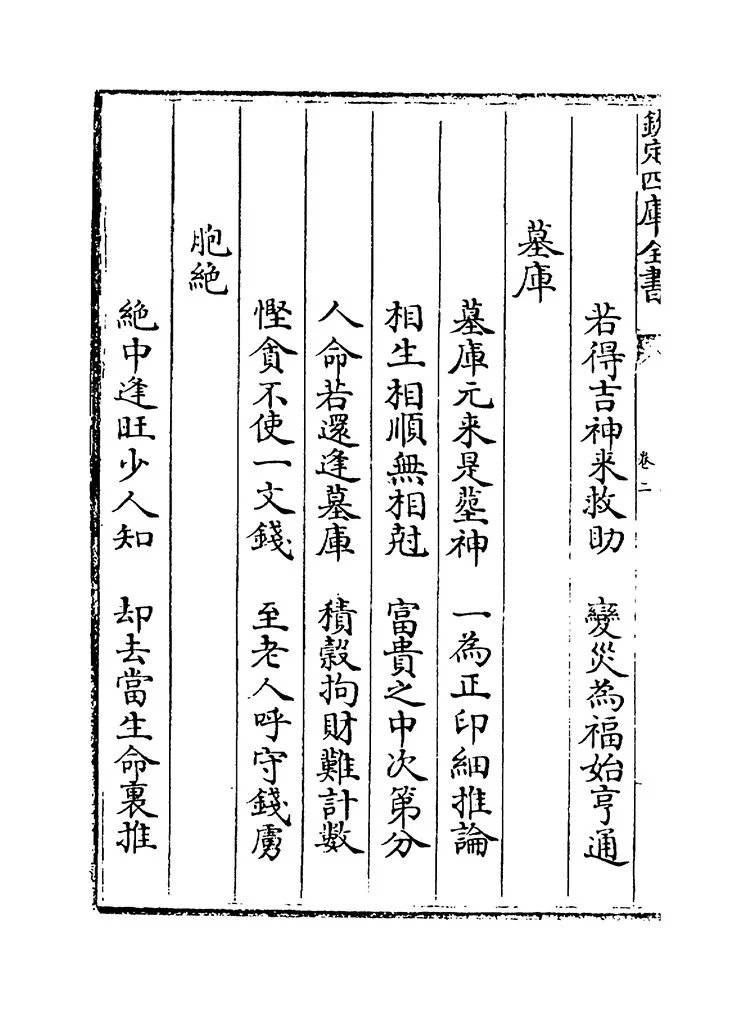 欽定四庫全書
卷二
若得吉神来救助　變災為福始亨通
墓庫
墓庫元来是塟神　一為正印細推論
相生相順無相尅　富貴之中次第分
人命若還逢墓庫　積穀拘財難計數
慳貪不使一文錢　至老人呼守錢虜
胞絶
絶中逢旺少人知　却去當生命裏推